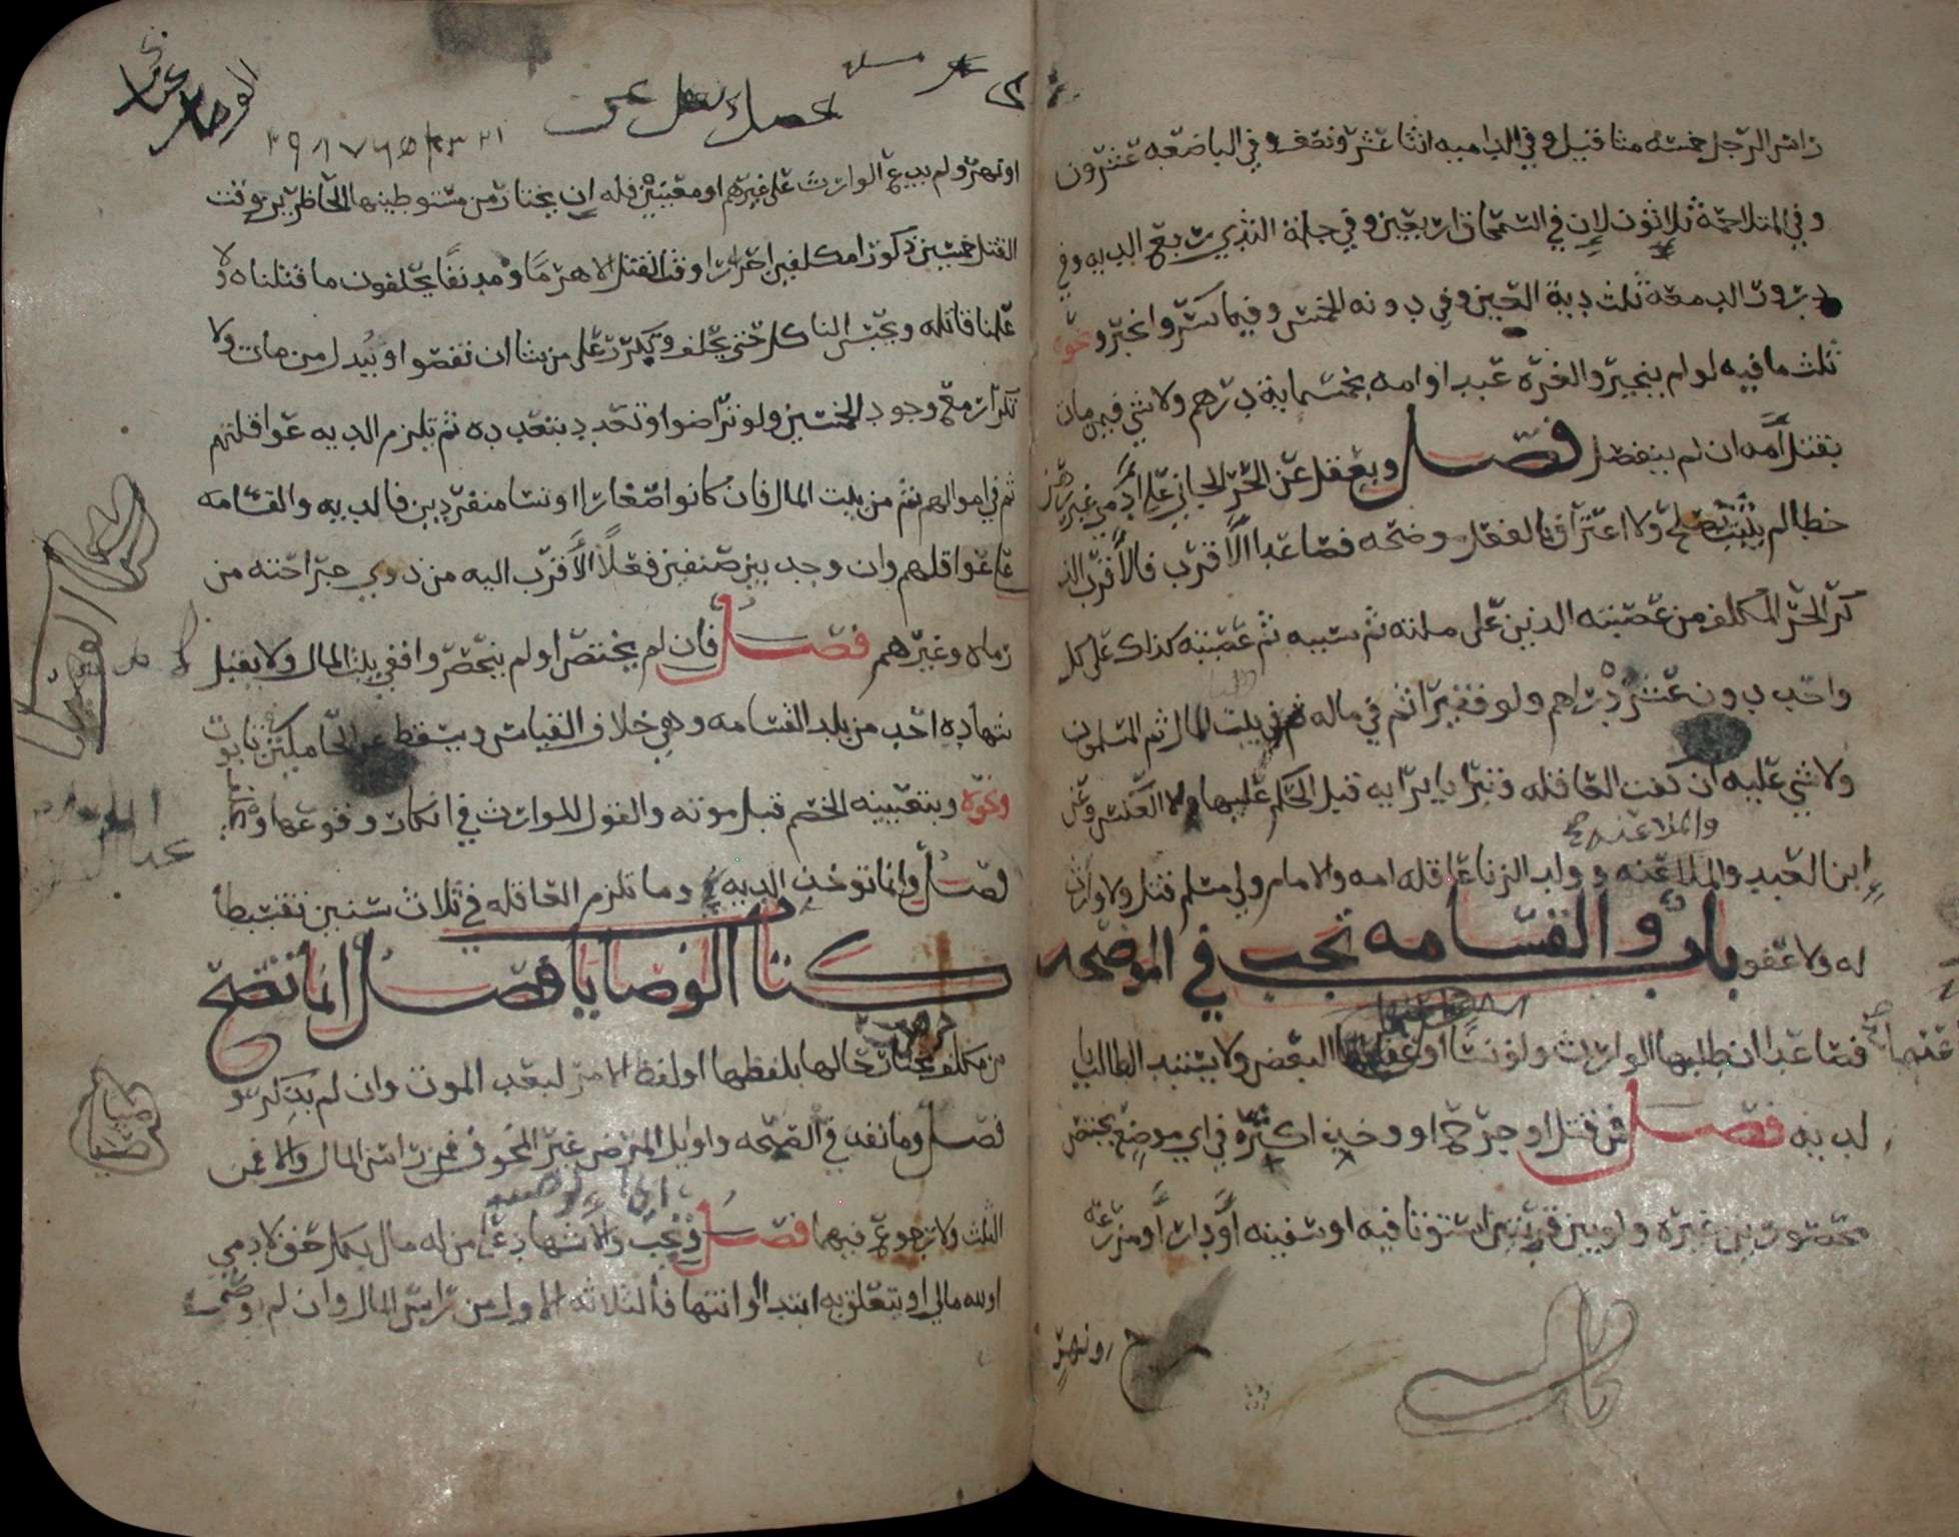 راس الرجل خمسه مثاقيل وفي الداميه اثنا عشر ونصف وفي الباضعه عشرون
وفي المتلاحمة ثلاثون لان في السمحاق اربعين وفي حلمة الثدي ربع الديه وفي
درور الدمعة ثلث دية العين وفي دونه الخمس وفيما كسر وانجبر ونحوه
ثلث ما فيه لو لم ينجبر والغره عبد او امه بخمسماية درهم ولا شي فيمن مات
بقتل امه ان لم ينفصل فصل ويعقل عن الحر الجاني على ادمي غير رهن
خطا لم يثبت بصلح ولا اعتراف بالفعل موضحه فصاعدا الاقرب فالاقرب الذ
كر الحر المكلف من عصبته الذين على ملته ثم سببه ثم عصبته كذلك على كل
واحد دون عشرة دراهم ولو فقيرا ثم في ماله ثم في بيت المال ثم المسلمون
ولا شي عليه ان كفت العاقله وتبرا بابرايه قبل الحكم عليها لا العكس وعن
والملاعنه صح
ابن العبد والملاعنه وولد الزنا عاقلة امه والامام ولي مسلم قتل ولا وارث
له ولا عفو باب والقسامه تجب في الموضحه
فصاعدا ان طلبها الوارث ولو نسا او عفا عنها البعض ولا يستبد الطالب با
لديه فصل فمن قتل او جرح او وجد اكثره في اي موضع يختص
محصورين غيره ولو بين قريتين استوتا فيه او سفينه او دار او مزرعه
او نهر
او نهر ولم يدع الوارث على غيرهم او معينين فله ان يختار من مستوطنيها الحاضرين وقت
القتل خمسين ذكورا مكلفين احرارا وقت القتل الا هرما ومدنفا يحلفون ما قتلناه ولا
علمنا قاتله ويحبس الناكل حتى يحلف ويكرر على من شا ان نقصوا ويبدل من مات ولا
تكرار مع وجود الخمسين ولو تراضوا وتعدد بتعدده ثم تلزم الديه عواقلهم
ثم في اموالهم ثم من بيت المال فان كانوا صغارا او نسا منفردين فالديه والقسامه
على عواقلهم وان وجد بين صفين فعلا الاقرب اليه من ذوي جراحته من
رماه وغيرهم فصل فان لم يختص او لم ينحصروا ففي بيت المال ولا يقبل
شهادة احد من بلد القسامه وهي خلاف القياس ويسقط عن الحاملين تابوت
ونحوه وبتعيينه الخصم قبل موته والقول للوارث في انكار وقوعها
فصل وانما توخذ الديه وما تلزم العاقله في ثلاث سنين تقسيطا
كتاب الوصايا فصل انما تصح
من مكلف مختار حالها بلفظها او لفظ الامر لبعد الموت وان لم يذكر و
فصل وما نفذ في الصحه واوايل المرض غير المخوف فمن راس المال والا فمن
الثلث ولا رجوع فيهما فصل وتجب والاشهاد على من له مال بكل حق لادمي
او لله مالي او يتعلق به ابتداا او انتها فالثلاثه الاول من راس المال وان لم يوص